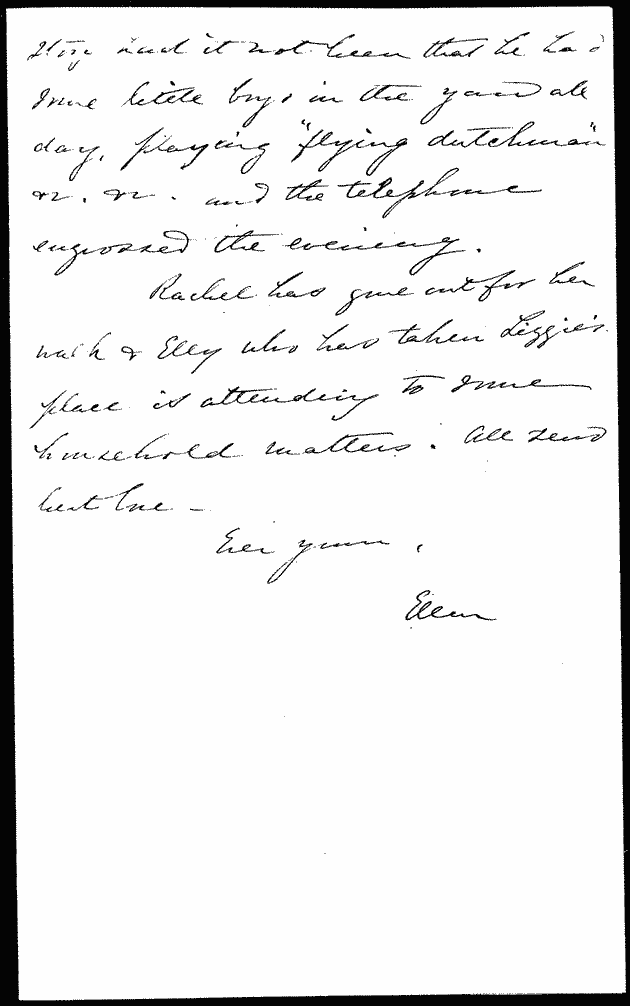 story had it not been that he had
some little boys in the yard all
day, playing "flying dutchman"
&c. &c. and the telephone
engrossed the evening.
Rachel has gone out for her
walk & Elly who has taken Lizzie's
place is attending to some
household matters. All send
best love -
Ever yours,
Ellen